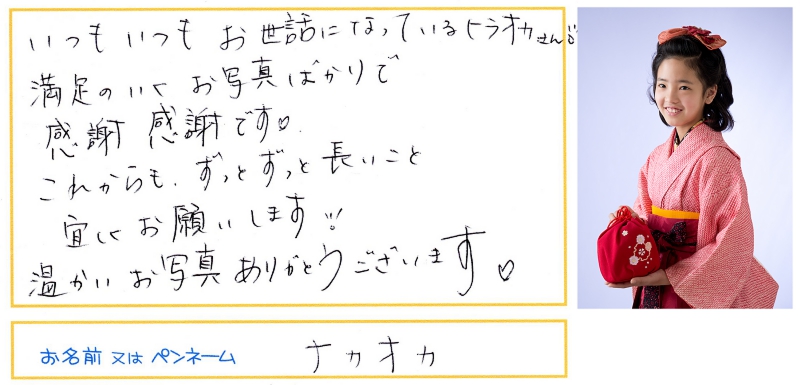 いつも いつも お世話になっているヒラオカさんで
満足のいく お写真ばかりで
感謝 感謝です♡.
これからも、ずっとずっと長いこと
宜しく お願いします!!
温かい お写真 ありがとうございます♡
お名前 又は ペンネーム
ナカオカ